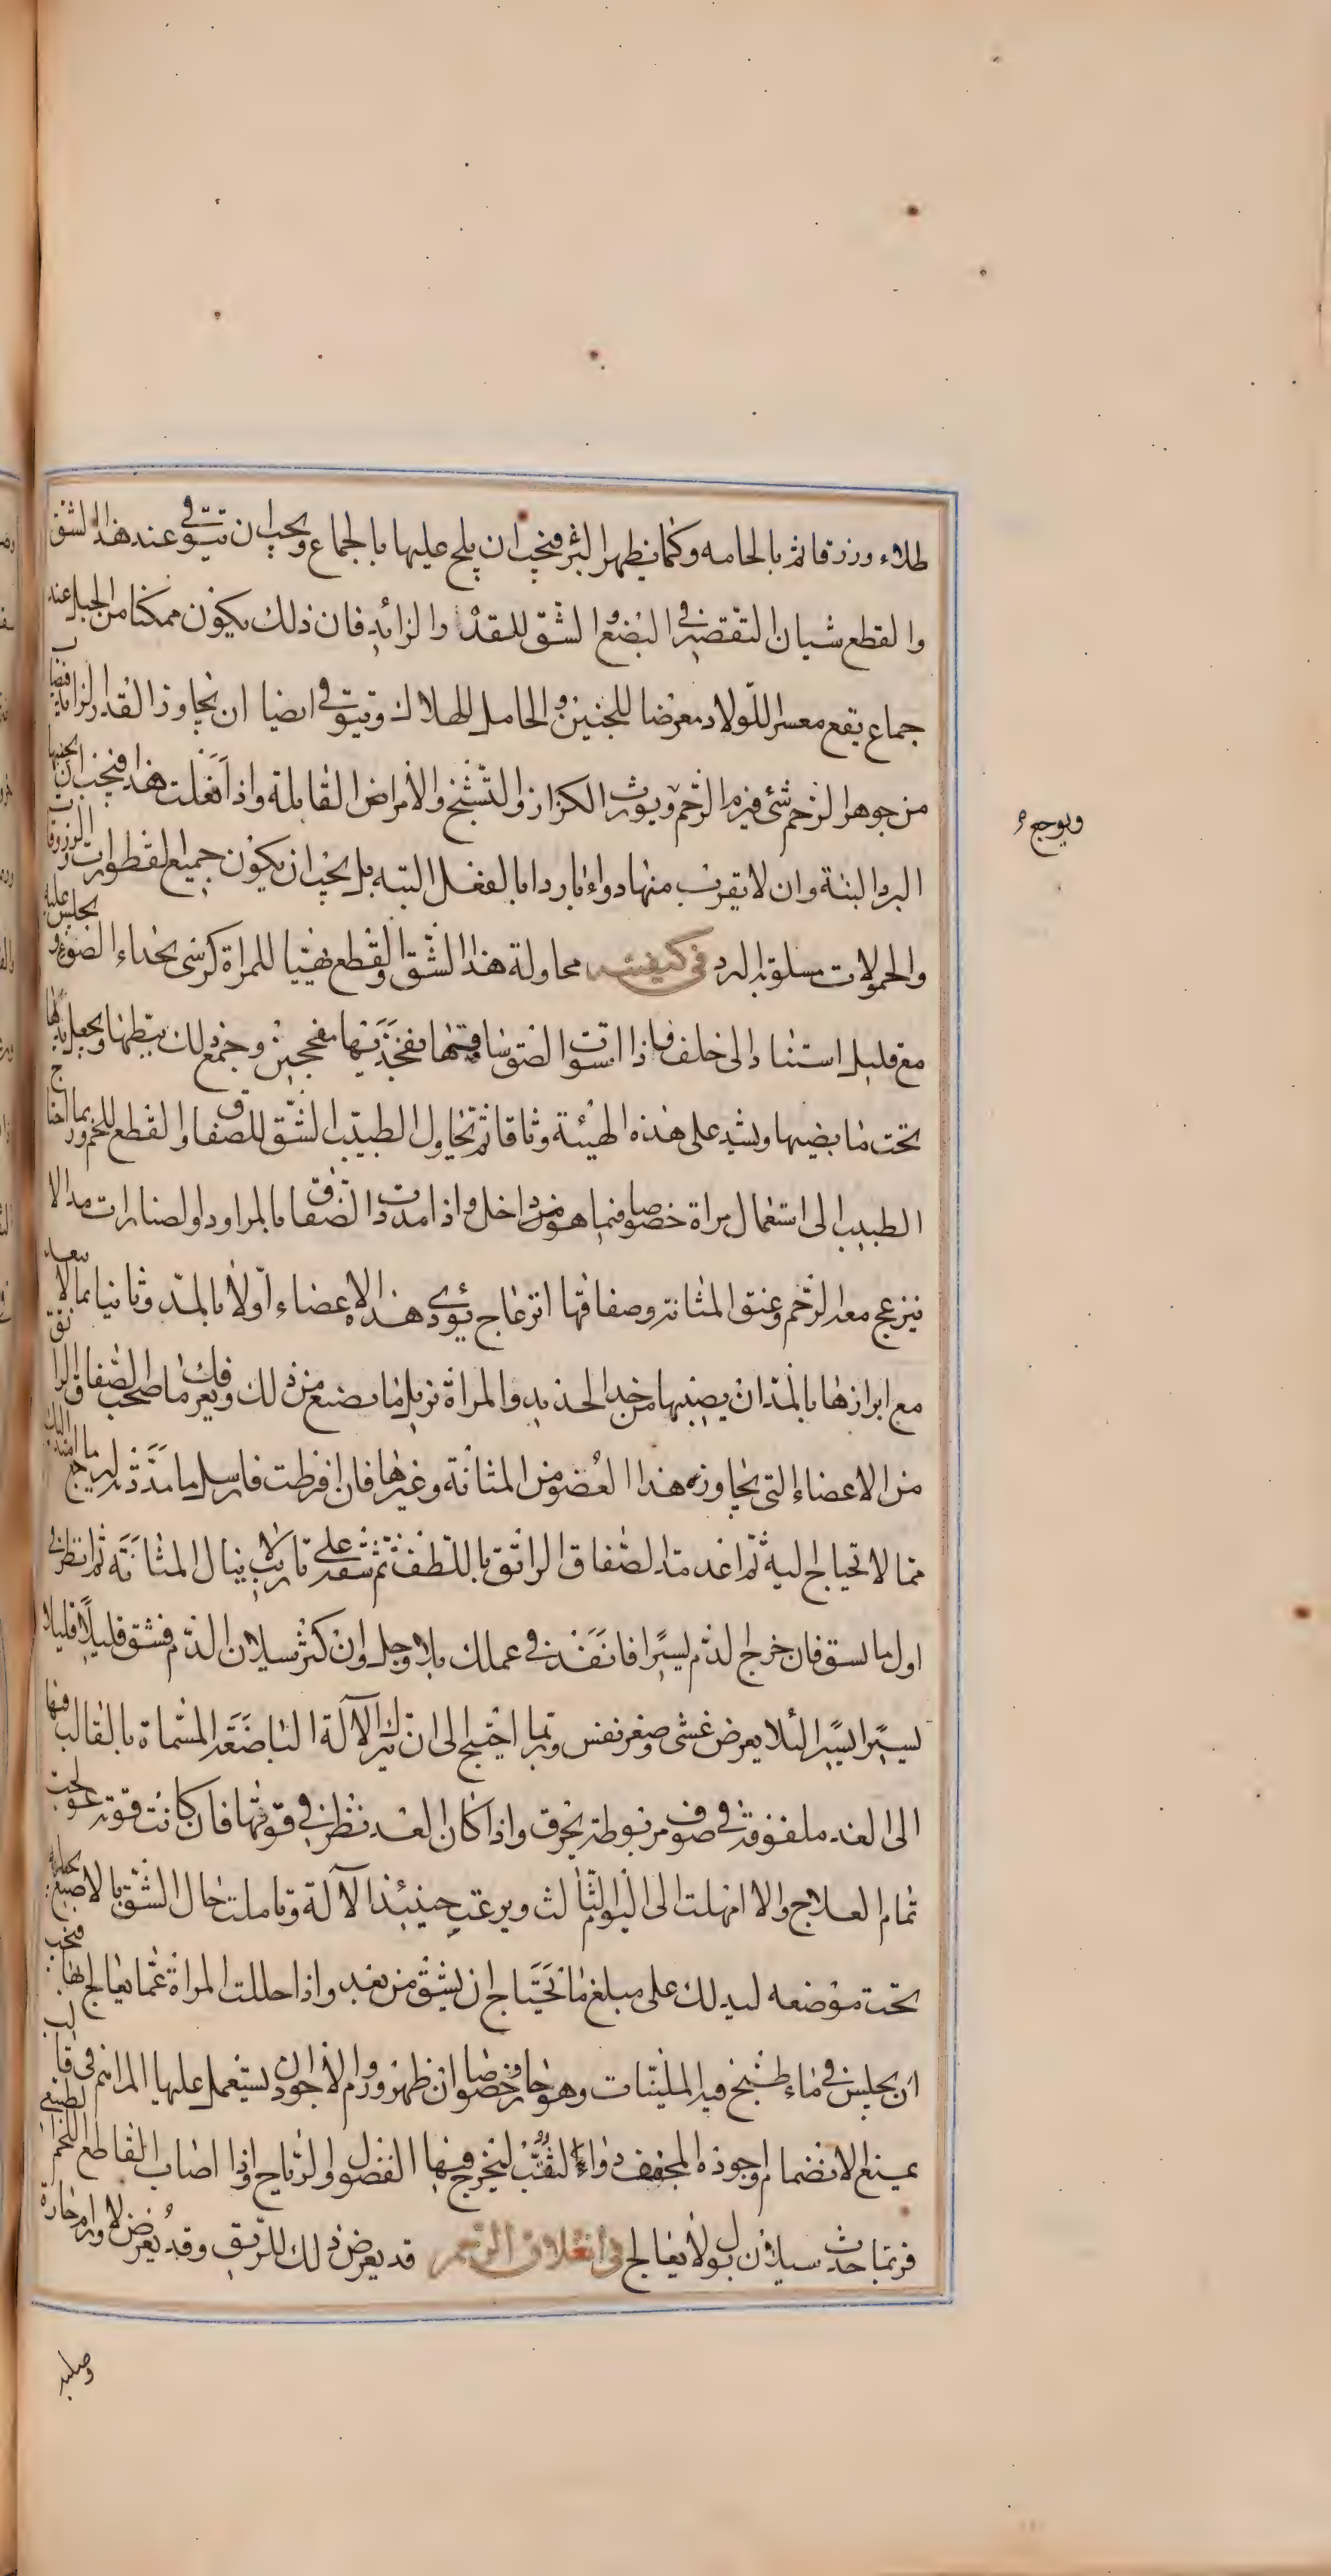 طلاء وزرقا ثم بالحامه وكما يظهر البثر فيجب ان يلح عليها بالجماع ويجب ان تتوقى عند هذا الشق
والقطع شيان التقصير في البضع الشق للقدر الزائد فان ذلك يكون ممكنا من الحبل عند
جماع يقع معسرا للولاد معرضا للجنين والحامل للهلاك وتتوقى ايضا ان يجاوز القدر الزائد
من جوهر الرحم شئ فيرم الرحم ويورث الكزاز والتشنج والامراض القاتلة واذا فعلت هذا فيجب ان يجنبها
البرد البتة وان لا يقرب منها دواء باردا بالفعل البتة بل يجب ان يكون جميع القطورات والزروقات
والحمولات مسلوبة البرد في كيفية محاولة هذا الشق والقطع تهيّا للمراة كرسى بحذاء الضوء ويجلس عليه
مع قليل استناد الى خلف فاذا استوت الصق ساقيها بفخذيها مفحجين وجمع ذلك ببطنها ويجعل يديها
تحت مابضيها ويشد على هذه الهيئة وثاقا ثم يحاول الطبيب الشق للصفاق والقطع للحم وربما احتاج
الطبيب الى استعمال مراة خصوصا فيما هو من داخل واذا مددت الصفاق بالمراود والصنارات مدا لا
ينزعج معه الرحم وعنق المثانة وصفاقها انزعاج يؤدى هذه الاعضاء اولا بالمد وثانيا بما لا يبعد
مع ابرازها بالمد ان يصيبها من حد الحديد والمراة تريك ما يصنع من ذلك ويعرفك ما صحب الصفاق الراتق
من الاعضاء التى يجاوزه هذا العضو من المثانة وغيرها فان افرطت فارسل ما مددته ليرجع ما امتد اليك
مما لا تحتاج اليه ثم اعد مد الصفاق الراتق باللطف ثم شقه على تاريب لا ينال المثانة ثم انظر في
اول ما يشق فان خرج الدم يسيرا فانفذ في عملك بلا وجل وان كثر سيلان الدم فشق قليلا قليلا
يسيرا يسيرا لئلا يعرض غشى وصغر نفس وربما احتيج الى ان تترك الالة الباضعة المسماة بالقالب فيها
الى الغد ملفوفة في صوف مربوطة بخرق واذا كان الغد نظر في قوتها فان كانت قوية عولجت
تمام العلاج والا امهلت الى اليوم الثالث ويرعت حينئذ الآلة وتاملت حال الشق بالاصبع
تحت موضعه ليدلك على مبلغ ما تحتاج ان يشق من بعد واذا حللت المراة عما يعالج بها فيجب
ان يجلس في ماء طبخ فيه الملينات وهو حار وخصوصا ان ظهر ورم والاجود ان يستعمل عليها المراهم في قالب
يمنع الانضمام واجوده المجفف ذو الثقب ليخرج فيها الفضول والرياح واذا اصاب القاطع اللحم
فربما حدث سيلان بول لا يعالج في انغلاق الرحم قد يعرض ذلك للرتق وقد يعرض لاورام حارة
ويوجع
وصلبه